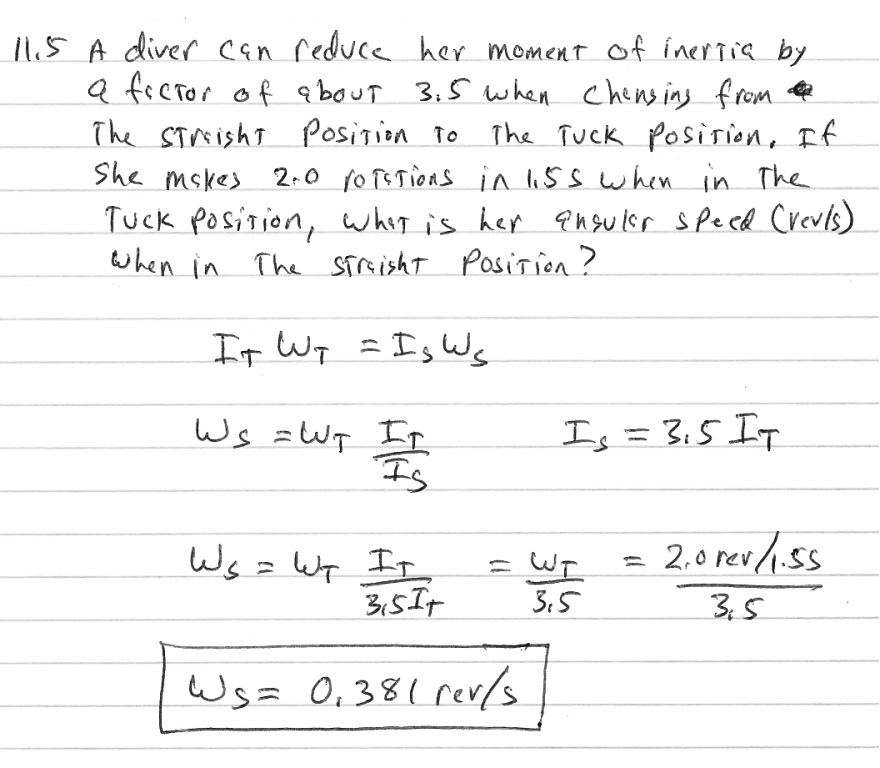 11.5 A diver can reduce her moment of inertia by
a factor of about 3.5 when changing from
the straight position to the tuck position. If
she makes 2.0 rotations in 1.5 s when in the
tuck position, what is her angular speed (rev/s)
when in the straight position?
I_T ω_T = I_S ω_S
ω_S = ω_T I_T/I_S    I_S = 3.5 I_T
ω_S = ω_T I_T/3.5I_T = ω_T/3.5 = 2.0 rev/1.5s/3.5
ω_S = 0.381 rev/s